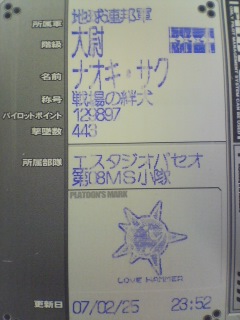 所属軍
地球連邦軍
階級
大尉
名前
ナオキ・サク
称号
戦場の絆犬
パイロットポイント
129897
撃墜数
443
所属部隊
エスタジオパセオ
第08MS小隊
PLATOON'S MARK
LOVE HAMMER
更新日
07/02/25 23:52